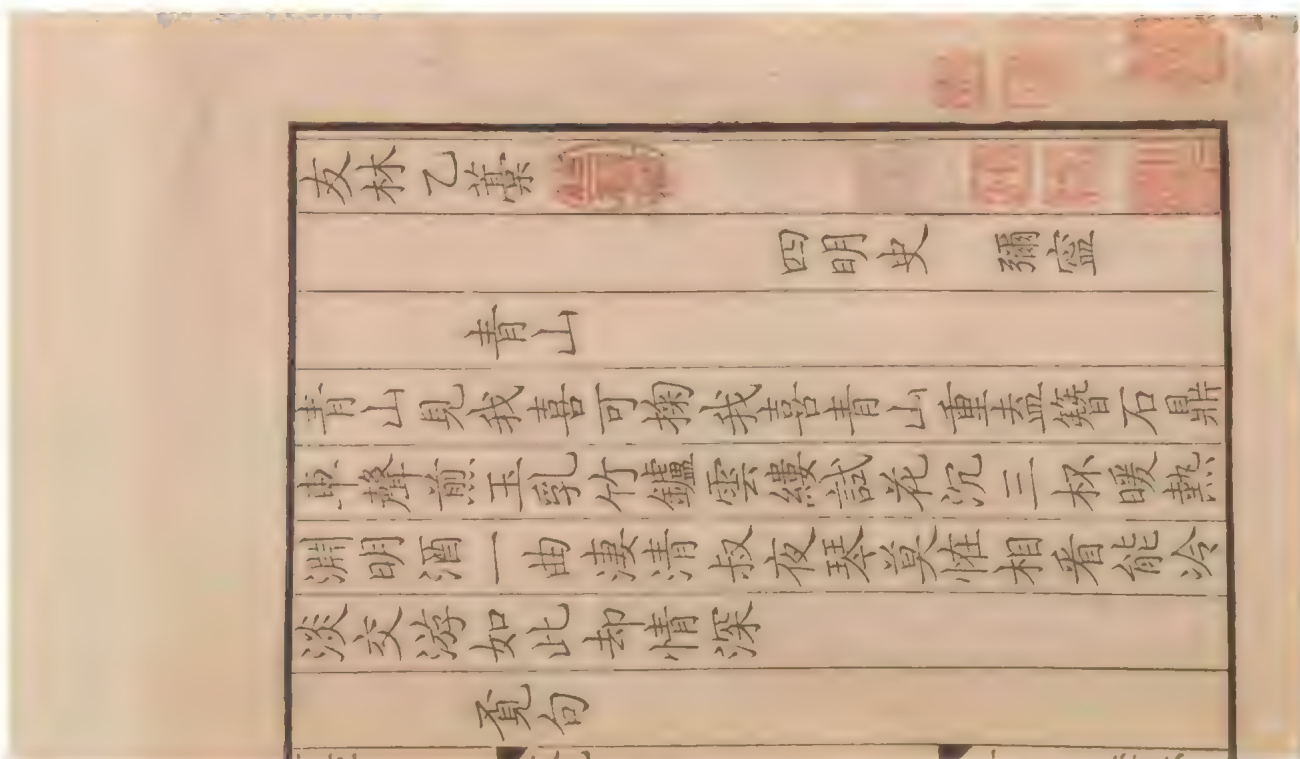 友林乙藁
四明史 彌寍
青山
青山見我喜可掬我喜青山重盍簪石鼎
車聲煎玉乳竹鑪雲縷試花沉三杯暖熱
淵明酒一曲淒清叔夜琴莫恠相看能冷
淡交游如此却情深
覔句